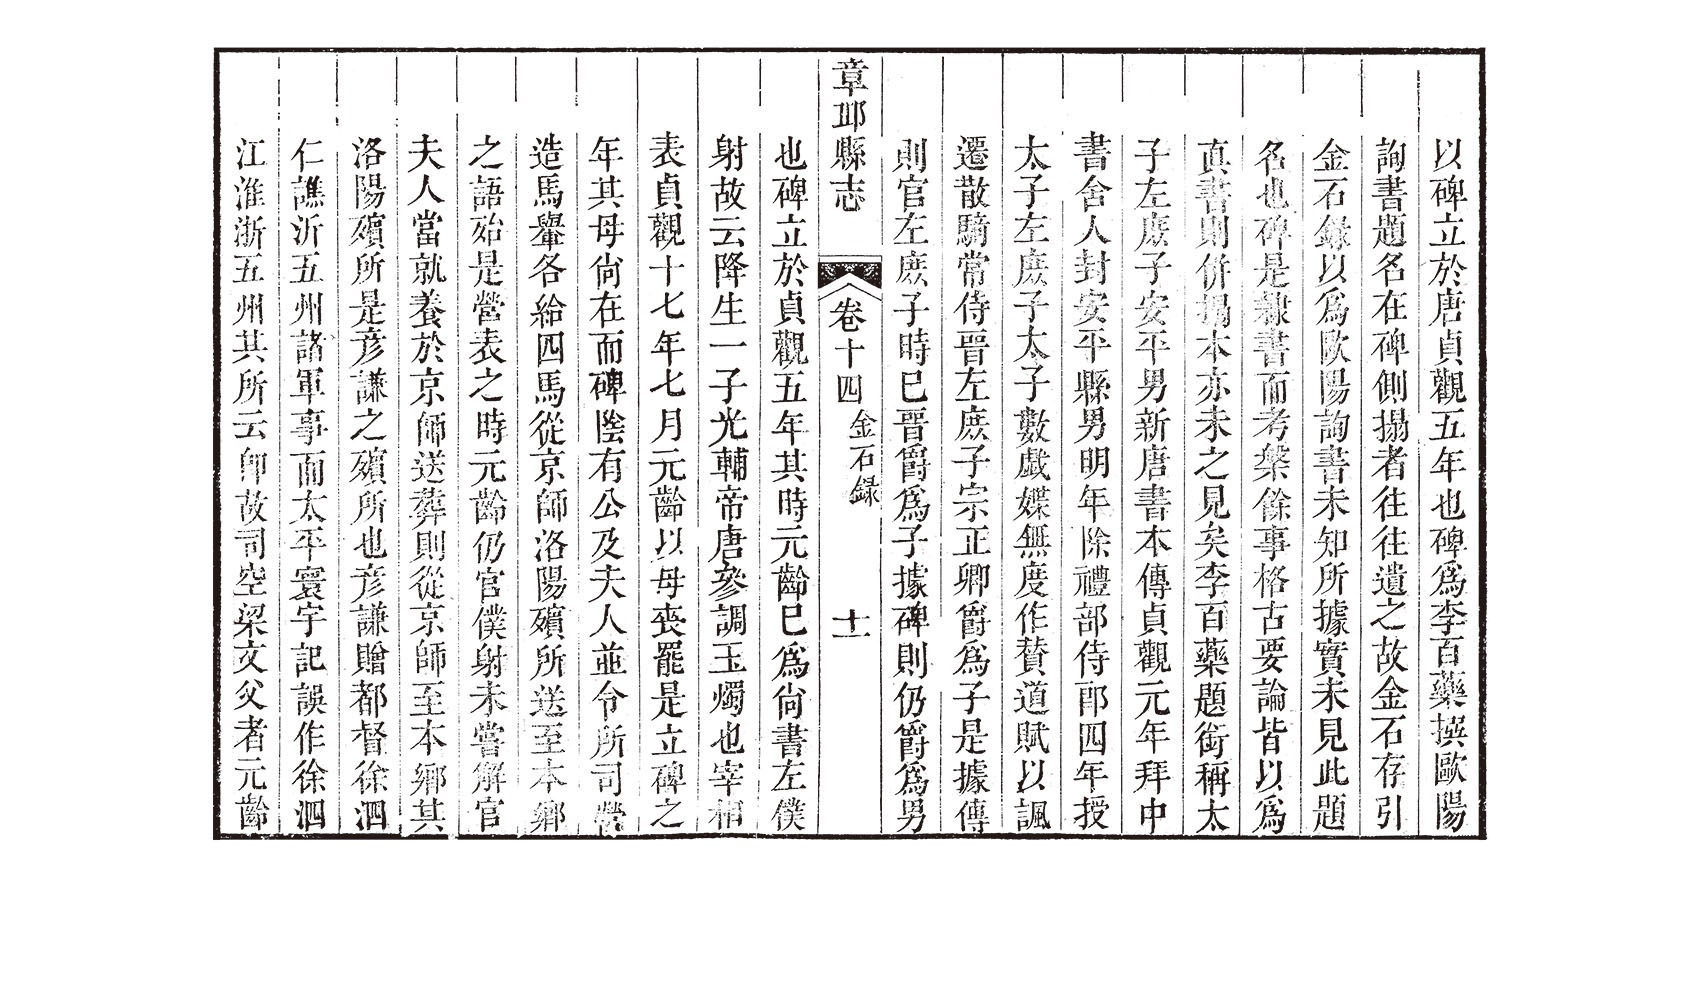 以碑立於唐貞觀五年也碑爲李百藥撰歐陽
詢書題名在碑側搨者往往遺之故金石存引
金石錄以爲歐陽詢書未知所據實未見此題
名也碑是隸書而考槃餘事格古要論皆以爲
真書則併搨本亦未之見矣李百藥題銜稱太
子左庶子安平男新唐書本傳貞觀元年拜中
書舍人封安平縣男明年除禮部侍郎四年授
太子左庶子太子數戲媟無度作賛道賦以諷
遷散騎常侍晉左庶子宗正卿爵爲子是據傳
則官左庶子時已晉爵爲子據碑則仍爵爲男
章邱縣志
卷十四
金石錄
十一
也碑立於貞觀五年其時元齡巳爲尚書左僕
射故云降生一子光輔帝唐參調玉燭也宰相
表貞觀十七年七月元齡以母喪罷是立碑之
年其母尚在而碑陰有公及夫人並令所司營
造馬轝各給四馬從京師洛陽殯所送至本鄉
之語殆是營表之時元齡仍官僕射未嘗解官
夫人當就養於京師送葬則從京師至本鄉其
洛陽殯所是彦謙之殯所也彦謙贈都督徐泗
仁譙沂五州諸軍事而太平寰宇記誤作徐泗
江淮浙五州其所云卽故司空梁文父者元齡